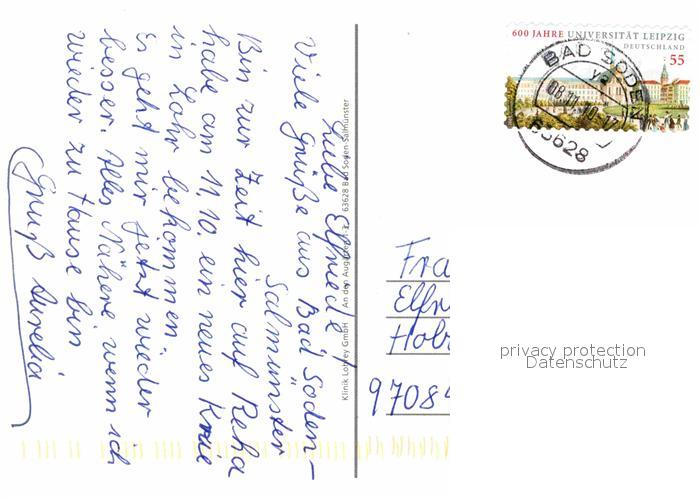 Liebe Elfriede!
Viele Grüße aus Bad Soden-
Salmünster
Bin zur Zeit hier auf Reha
habe am 11.10. ein neues Knie
in Lohr bekommen.
Es geht mir jetzt wieder
besser. Alles Nähere wenn ich
wieder zu Hause bin
Gruß Aurelia
Klinik Lohrey GmbH An den 63628 Bad Soden-Salmünster
600 JAHRE UNIVERSITÄT LEIPZIG
DEUTSCHLAND
55
BAD SODEN
63628
Fra
Elfr
Holz
97084
privacy protection
Datenschutz